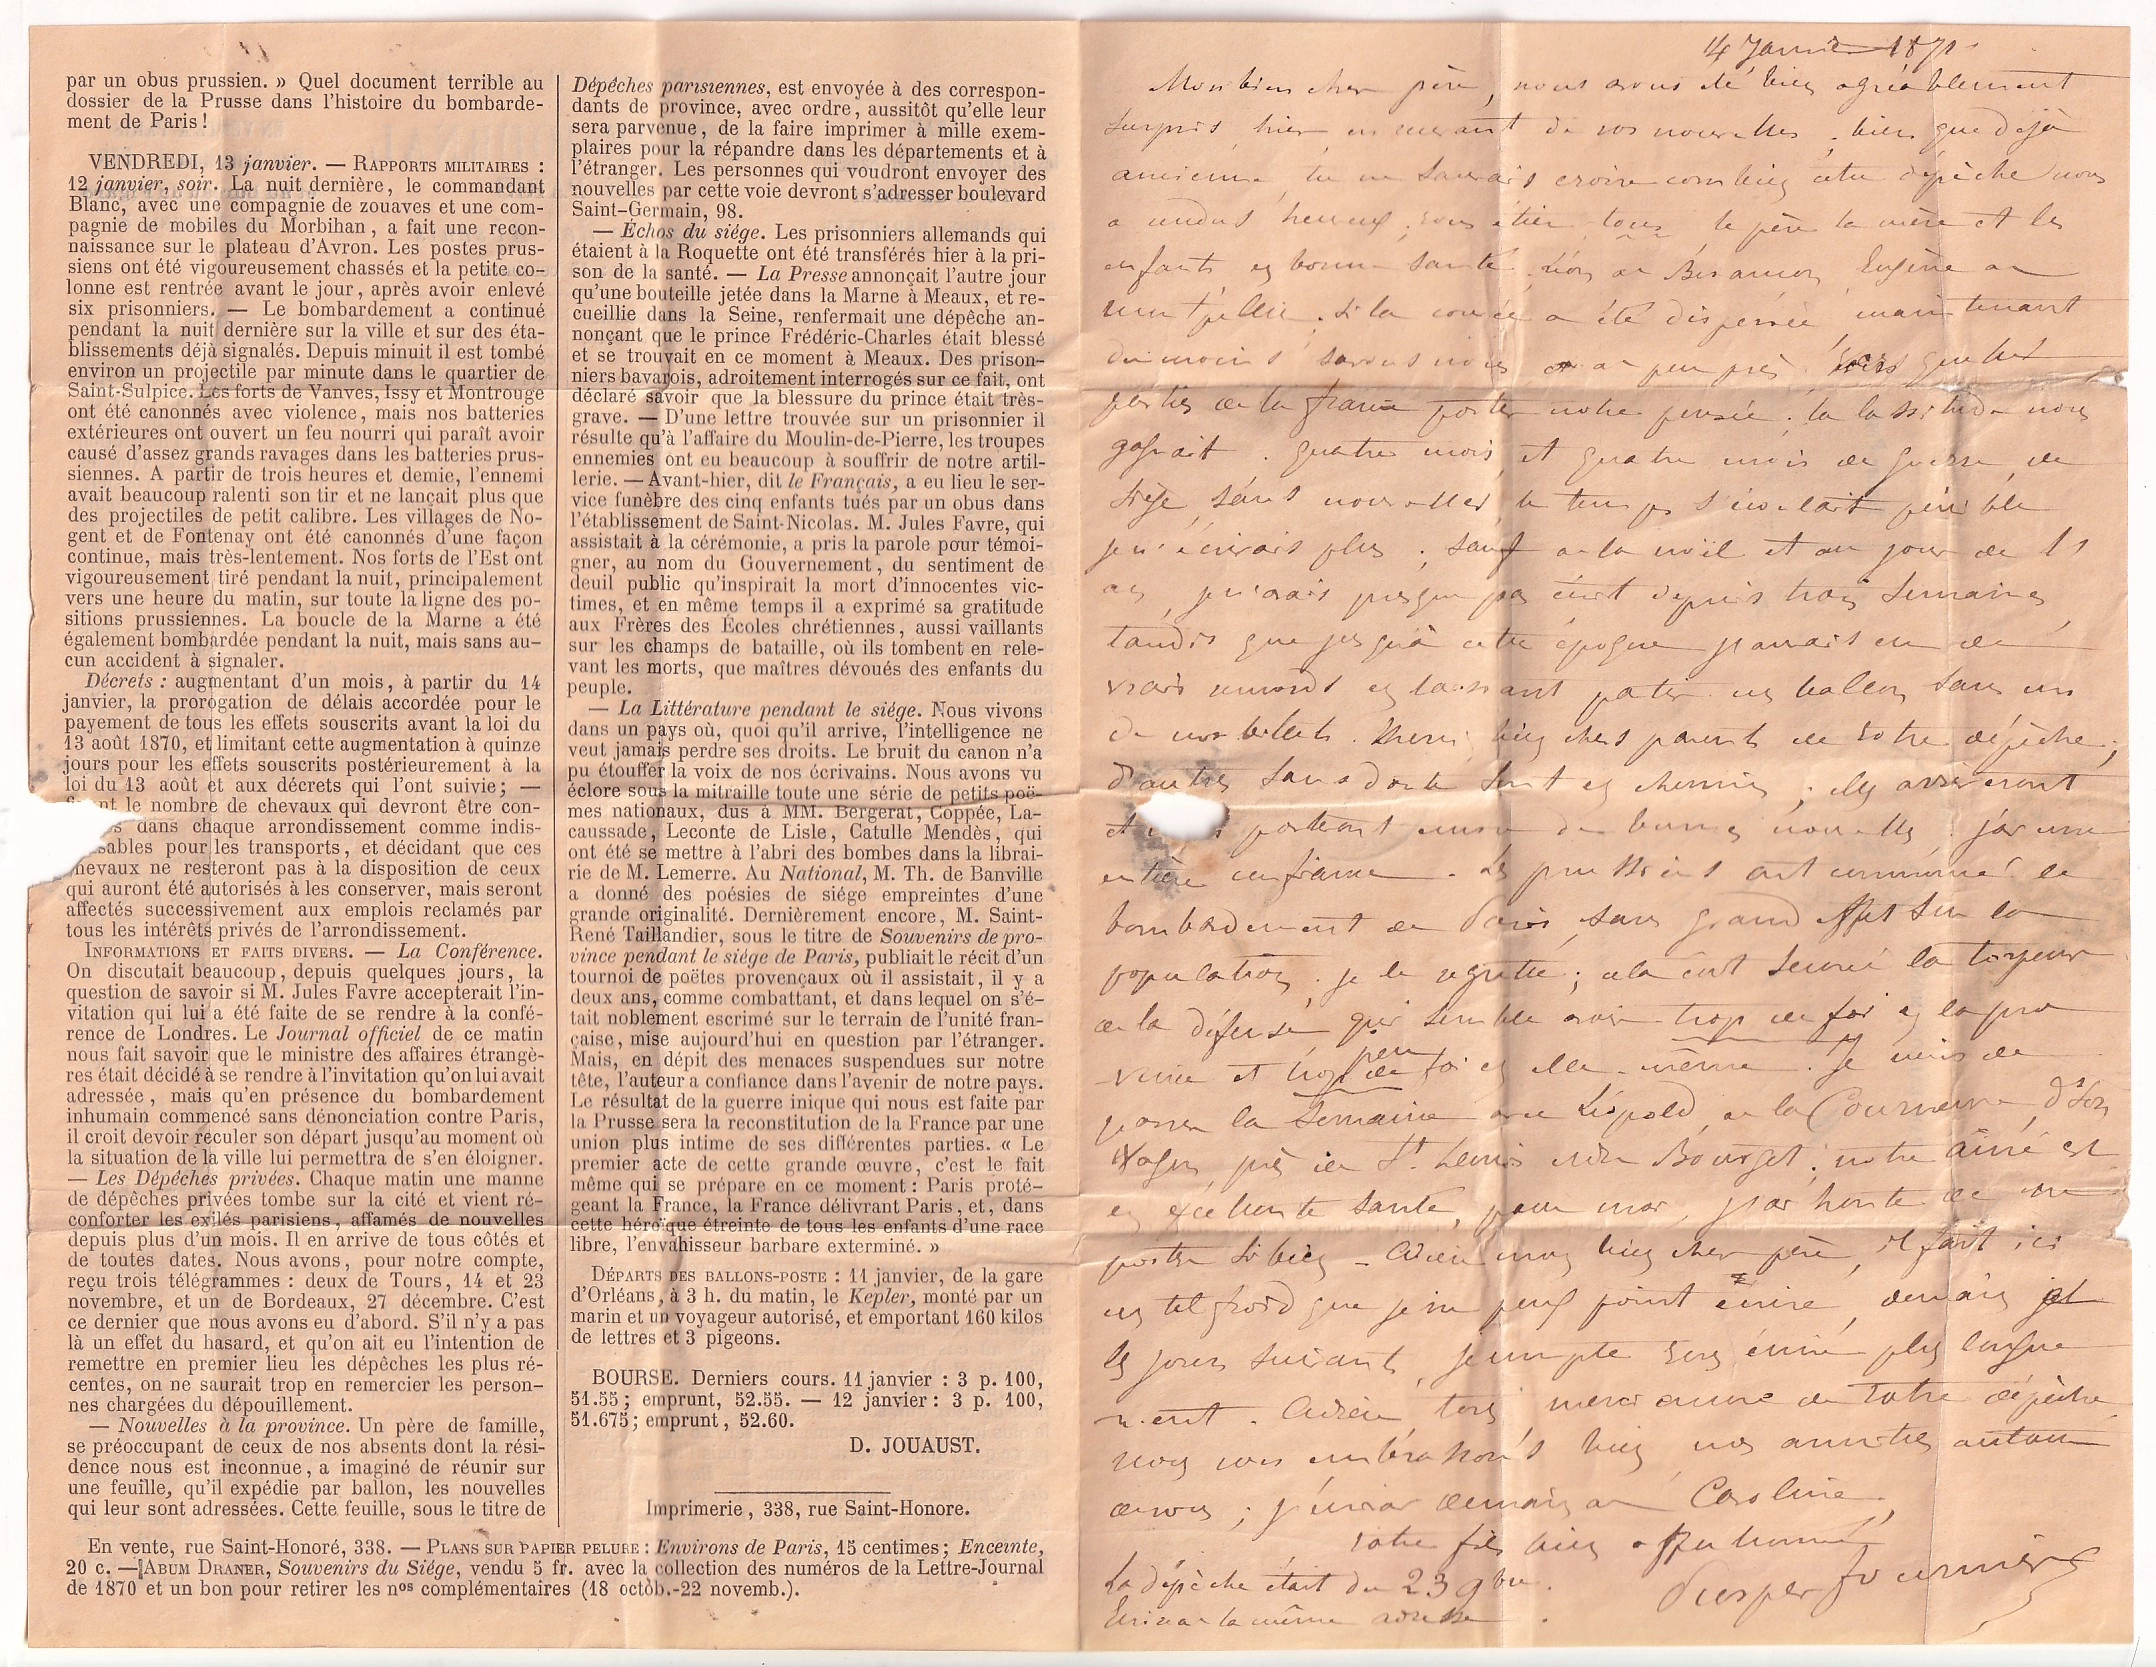 par un obus prussien. » Quel document terrible au
dossier de la Prusse dans l'histoire du bombarde-
ment de Paris !
VENDREDI, 13 janvier. — RAPPORTS MILITAIRES :
12 janvier, soir. La nuit dernière, le commandant
Blanc, avec une compagnie de zouaves et une com-
pagnie de mobiles du Morbihan, a fait une recon-
naissance sur le plateau d'Avron. Les postes prus-
siens ont été vigoureusement chassés et la petite co-
lonne est rentrée avant le jour, après avoir enlevé
six prisonniers. — Le bombardement a continué
pendant la nuit dernière sur la ville et sur des éta-
blissements déjà signalés. Depuis minuit il est tombé
environ un projectile par minute dans le quartier de
Saint-Sulpice. Les forts de Vanves, Issy et Montrouge
ont été canonnés avec violence, mais nos batteries
extérieures ont ouvert un feu nourri qui paraît avoir
causé d'assez grands ravages dans les batteries prus-
siennes. A partir de trois heures et demie, l'ennemi
avait beaucoup ralenti son tir et ne lançait plus que
des projectiles de petit calibre. Les villages de No-
gent et de Fontenay ont été canonnés d'une façon
continue, mais très-lentement. Nos forts de l'Est ont
vigoureusement tiré pendant la nuit, principalement
vers une heure du matin, sur toute la ligne des po-
sitions prussiennes. La boucle de la Marne a été
également bombardée pendant la nuit, mais sans au-
cun accident à signaler.
Décrets : augmentant d'un mois, à partir du 14
janvier, la prorogation de délais accordée pour le
payement de tous les effets souscrits avant la loi du
13 août 1870, et limitant cette augmentation à quinze
jours pour les effets souscrits postérieurement à la
loi du 13 août et aux décrets qui l'ont suivie; —
nt le nombre de chevaux qui devront être con-
s dans chaque arrondissement comme indis-
sables pour les transports, et décidant que ces
hevaux ne resteront pas à la disposition de ceux
qui auront été autorisés à les conserver, mais seront
affectés successivement aux emplois reclamés par
tous les intérêts privés de l'arrondissement.
INFORMATIONS ET FAITS DIVERS. — La Conférence.
On discutait beaucoup, depuis quelques jours, la
question de savoir si M. Jules Favre accepterait l'in-
vitation qui lui a été faite de se rendre à la confé-
rence de Londres. Le Journal officiel de ce matin
nous fait savoir que le ministre des affaires étrangè-
res était décidé à se rendre à l'invitation qu'on lui avait
adressée, mais qu'en présence du bombardement
inhumain commencé sans dénonciation contre Paris,
il croit devoir reculer son départ jusqu'au moment où
la situation de la ville lui permettra de s'en éloigner.
— Les Dépêches privées. Chaque matin une manne
de dépêches privées tombe sur la cité et vient ré-
conforter les exilés parisiens, affamés de nouvelles
depuis plus d'un mois. Il en arrive de tous côtés et
de toutes dates. Nous avons, pour notre compte,
reçu trois télégrammes : deux de Tours, 14 et 23
novembre, et un de Bordeaux, 27 décembre. C'est
ce dernier que nous avons eu d'abord. S'il n'y a pas
là un effet du hasard, et qu'on ait eu l'intention de
remettre en premier lieu les dépêches les plus ré-
centes, on ne saurait trop en remercier les person-
nes chargées du dépouillement.
— Nouvelles à la province. Un père de famille,
se préoccupant de ceux de nos absents dont la rési-
dence nous est inconnue, a imaginé de réunir sur
une feuille, qu'il expédie par ballon, les nouvelles
qui leur sont adressées. Cette feuille, sous le titre de
Dépêches parisiennes, est envoyée à des correspon-
dants de province, avec ordre, aussitôt qu'elle leur
sera parvenue, de la faire imprimer à mille exem-
plaires pour la répandre dans les départements et à
l'étranger. Les personnes qui voudront envoyer des
nouvelles par cette voie devront s'adresser boulevard
Saint-Germain, 98.
— Échos du siége. Les prisonniers allemands qui
étaient à la Roquette ont été transférés hier à la pri-
son de la santé. — La Presse annonçait l'autre jour
qu'une bouteille jetée dans la Marne à Meaux, et re-
cueillie dans la Seine, renfermait une dépêche an-
nonçant que le prince Frédéric-Charles était blessé
et se trouvait en ce moment à Meaux. Des prison-
niers bavarois, adroitement interrogés sur ce fait, ont
déclaré savoir que la blessure du prince était très-
grave. — D'une lettre trouvée sur un prisonnier il
résulte qu'à l'affaire du Moulin-de-Pierre, les troupes
ennemies ont eu beaucoup à souffrir de notre artil-
lerie. — Avant-hier, dit le Français, a eu lieu le ser-
vice funèbre des cinq enfants tués par un obus dans
l'établissement de Saint-Nicolas. M. Jules Favre, qui
assistait à la cérémonie, a pris la parole pour témoi-
gner, au nom du Gouvernement, du sentiment de
deuil public qu'inspirait la mort d'innocentes vic-
times, et en même temps il a exprimé sa gratitude
aux Frères des Écoles chrétiennes, aussi vaillants
sur les champs de bataille, où ils tombent en rele-
vant les morts, que maîtres dévoués des enfants du
peuple.
— La Littérature pendant le siége. Nous vivons
dans un pays où, quoi qu'il arrive, l'intelligence ne
veut jamais perdre ses droits. Le bruit du canon n'a
pu étouffer la voix de nos écrivains. Nous avons vu
éclore sous la mitraille toute une série de petits poë-
mes nationaux, dus à MM. Bergerat, Coppée, La-
caussade, Leconte de Lisle, Catulle Mendès, qui
ont été se mettre à l'abri des bombes dans la librai-
rie de M. Lemerre. Au National, M. Th. de Banville
a donné des poésies de siége empreintes d'une
grande originalité. Dernièrement encore, M. Saint-
René Taillandier, sous le titre de Souvenirs de pro-
vince pendant le siége de Paris, publiait le récit d'un
tournoi de poëtes provençaux où il assistait, il y a
deux ans, comme combattant, et dans lequel on s'é-
tait noblement escrimé sur le terrain de l'unité fran-
çaise, mise aujourd'hui en question par l'étranger.
Mais, en dépit des menaces suspendues sur notre
tête, l'auteur a confiance dans l'avenir de notre pays.
Le résultat de la guerre inique qui nous est faite par
la Prusse sera la reconstitution de la France par une
union plus intime de ses différentes parties. « Le
premier acte de cette grande œuvre, c'est le fait
même qui se prépare en ce moment : Paris proté-
geant la France, la France délivrant Paris, et, dans
cette héroïque étreinte de tous les enfants d'une race
libre, l'envahisseur barbare exterminé. »
DÉPARTS DES BALLONS-POSTE : 11 janvier, de la gare
d'Orléans, à 3 h. du matin, le Kepler, monté par un
marin et un voyageur autorisé, et emportant 160 kilos
de lettres et 3 pigeons.
BOURSE. Derniers cours. 11 janvier : 3 p. 100,
51.55; emprunt, 52.55. — 12 janvier : 3 p. 100,
51.675; emprunt, 52.60.
D. JOUAUST.
Imprimerie, 338, rue Saint-Honore.
En vente, rue Saint-Honoré, 338. — PLANS SUR PAPIER PELURE : Environs de Paris, 15 centimes; Enceinte,
20 c. — ABUM DRANER, Souvenirs du Siége, vendu 5 fr. avec la collection des numéros de la Lettre-Journal
de 1870 et un bon pour retirer les nos complémentaires (18 octob.-22 novemb.).
14 Janvier 1871
Mon bien cher père, nous avons été bien agréablement
surpris hier en recevant de vos nouvelles, bien que déjà
ancienne, tu ne saurais croire combien cette dépêche nous
a rendus heureux, vous étiez tous le père la mère et les
enfants en bonne santé, Léon à Besançon Eugène à
Montpellier. Si la couvée a été dispersée maintenant
du moins savons nous à peu près vers quelles
parties de la france porter notre pensée; la lassitude nous
gagnait. quatre mois et quatre mois de guerre, de
siège, sans nouvelles, le temps s'écoulait pénible
je n'écrivais plus; sauf à la noël et au jour de l'
an, je n'avais presque pas écrit depuis trois semaines
tandis que jusqu'à cette époque j'aurais eu de
vrais remords en laissant partir un ballon sans un
de nos billets. Merci bien chers parents de votre dépêche;
d'autres sans doute sont en chemin; elles arriveront
et porteront encore de bonnes nouvelles. j'ai une
entière confiance. Les prussiens ont commencé le
bombardement de Paris, sans grand effet sur la
population, je le regrette; cela eut secoué la torpeur
de la défense qui semble avoir trop de foi en la pro
-vince et trop peu de foi en elle-même. Je viens de
passer la semaine avec Léopold à la Courneuve
près de St. Denis et du Bourget; notre aîné est
en excellente santé, pour moi, j'ai honte de me
porter si bien. Adieu mon bien cher père, il fait ici
un tel froid que je ne peux point écrire, demain et
les jours suivants, je compte vous écrire plus longue
-ment. Adieu tous merci encore de votre dépêche
nous vous embrassons bien, nos amitiés autour
de vous; j'écrirai demain à Caroline.
votre fils bien affectionné
Prosper Fournier
La dépêche était du 23 9bre.
Ecrivez la même adresse.